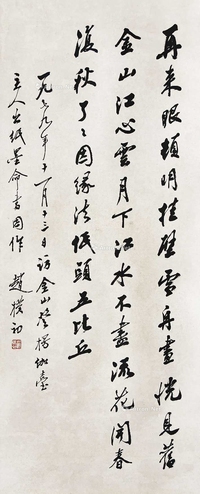 再来眼顿明挂壁雪舟画恍见旧
金山江心云月下江水不尽流花开春
复秋了了因缘法低头五比丘
一九七九年十一月十三日访金山登楞伽台
主人出纸墨命书因作 赵朴初